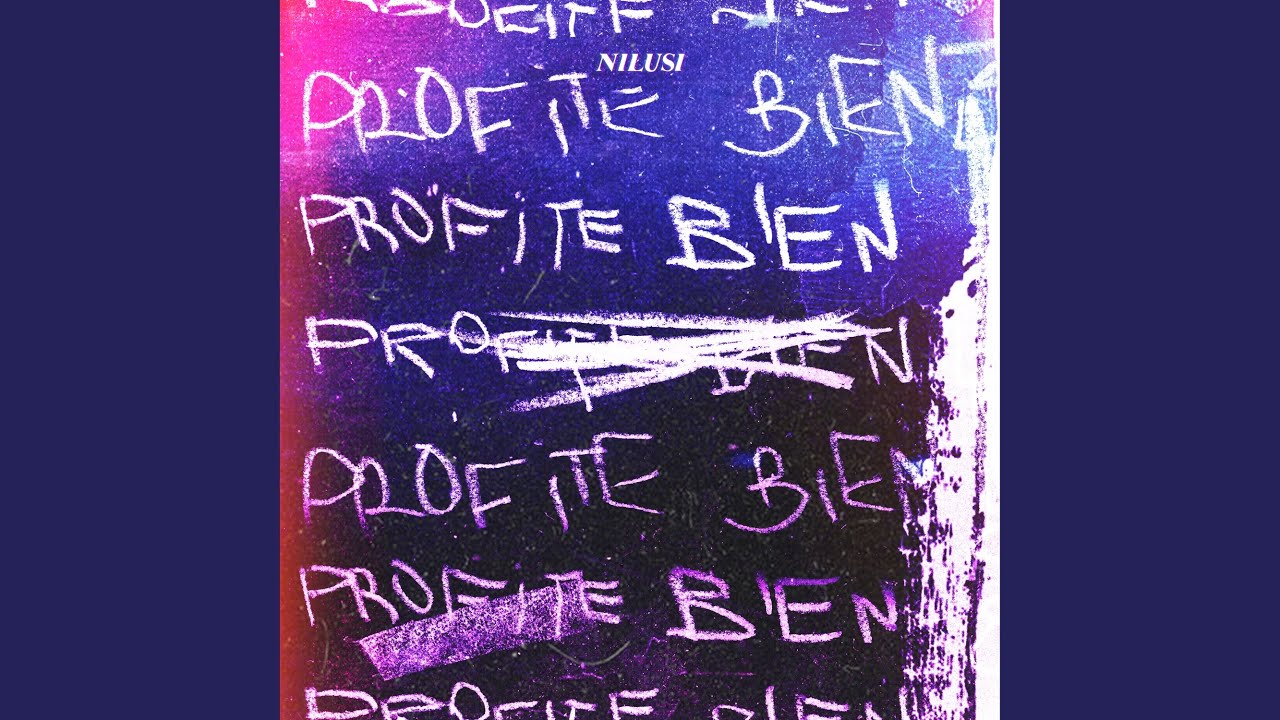 PROFITE BIEN
NILUSI
PROFITE BIEN
PROFITE BIEN
PROFITE BIEN
PROFITE BIEN
PROFITE BIEN
PROFITE BIEN